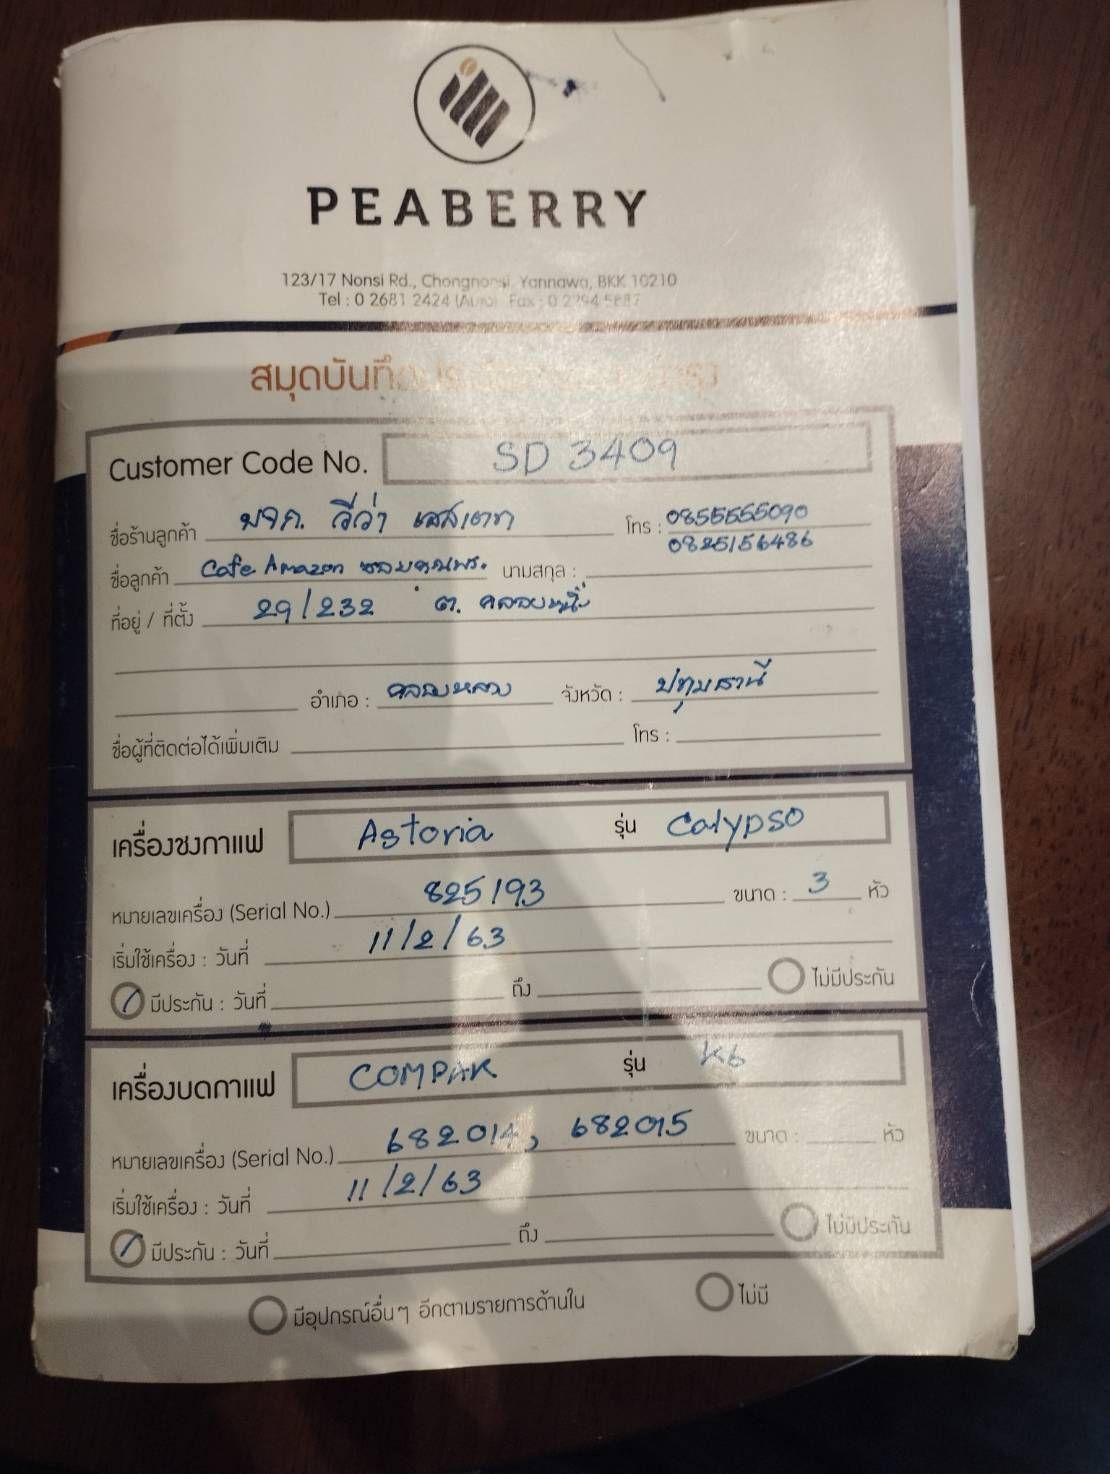 PEABERRY
123/17 Nonsi Rd., Chongnonsi, Yannawa, BKK 10210
Tel : 0 2681 2424 (Auto) Fax : 0 2294 5687
สมุดบันทึก
Customer Code No. SD 3409
ชื่อร้านลูกค้า หจก. วีว่า เอสเตท โทร : 0855555090
0825156486
ชื่อลูกค้า Cafe Amazon นามสกุล :
ที่อยู่ / ที่ตั้ง 29/232 ต. คลองหนึ่ง
อำเภอ : คลองหลวง จังหวัด : ปทุมธานี
ชื่อผู้ที่ติดต่อได้เพิ่มเติม โทร :
เครื่องชงกาแฟ Astoria รุ่น Calypso
หมายเลขเครื่อง (Serial No.) 825193 ขนาด : 3 หัว
เริ่มใช้เครื่อง : วันที่ 11/2/63
มีประกัน : วันที่ ถึง ไม่มีประกัน
เครื่องบดกาแฟ COMPAK รุ่น K6
หมายเลขเครื่อง (Serial No.) 682014, 682015 ขนาด : หัว
เริ่มใช้เครื่อง : วันที่ 11/2/63
มีประกัน : วันที่ ถึง ไม่มีประกัน
มีอุปกรณ์อื่นๆ อีกตามรายการด้านใน ไม่มี